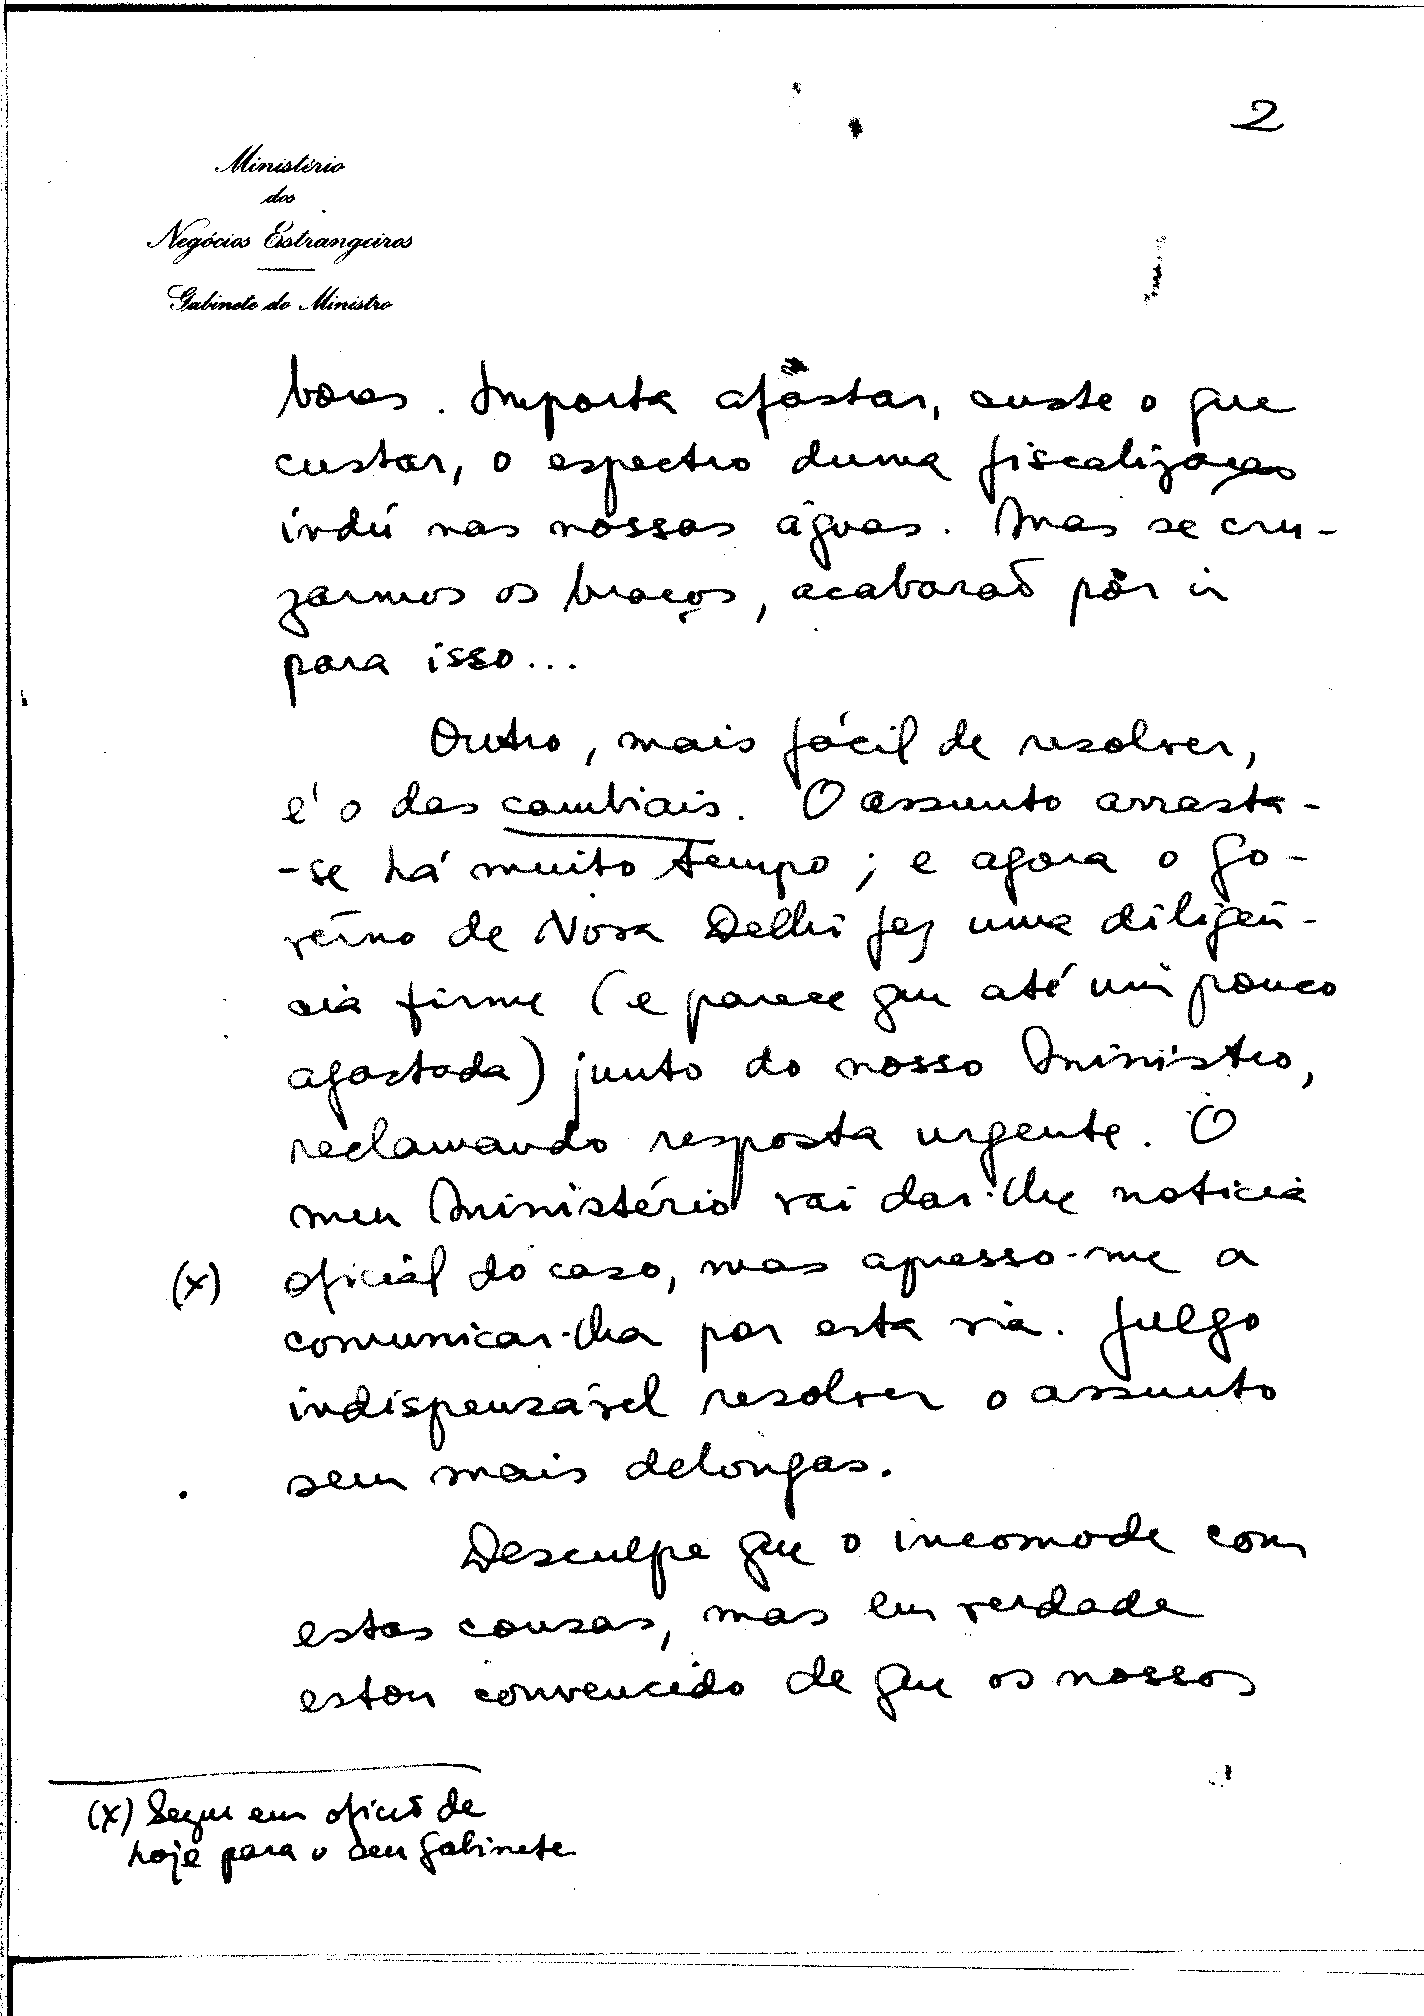 2
Ministério
dos
Negócios Estrangeiros
Gabinete do Ministro
boas. Importa afastar, custe o que
custar, o espectro duma fiscalização
indú nas nossas águas. Mas se cru-
zarmos os braços, acabarão por ir
para isso...
Outro, mais fácil de resolver,
é o das cambiais. O assunto arrasta-
-se há muito tempo; e agora o go-
vêrno de Nova Delhi fez uma diligên-
cia firme (e parece que até um pouco
agastada) junto do nosso Ministro,
reclamando resposta urgente. O
meu Ministério vai dar-lhe notícia
(x) oficial do caso, mas apresso-me a
comunicar-lha por esta via. Julgo
indispensável resolver o assunto
sem mais delongas.
Desculpe que o incomode com
estas cousas, mas em verdade
estou convencido de que os nossos
(x) Segue em ofício de
hoje para o seu Gabinete